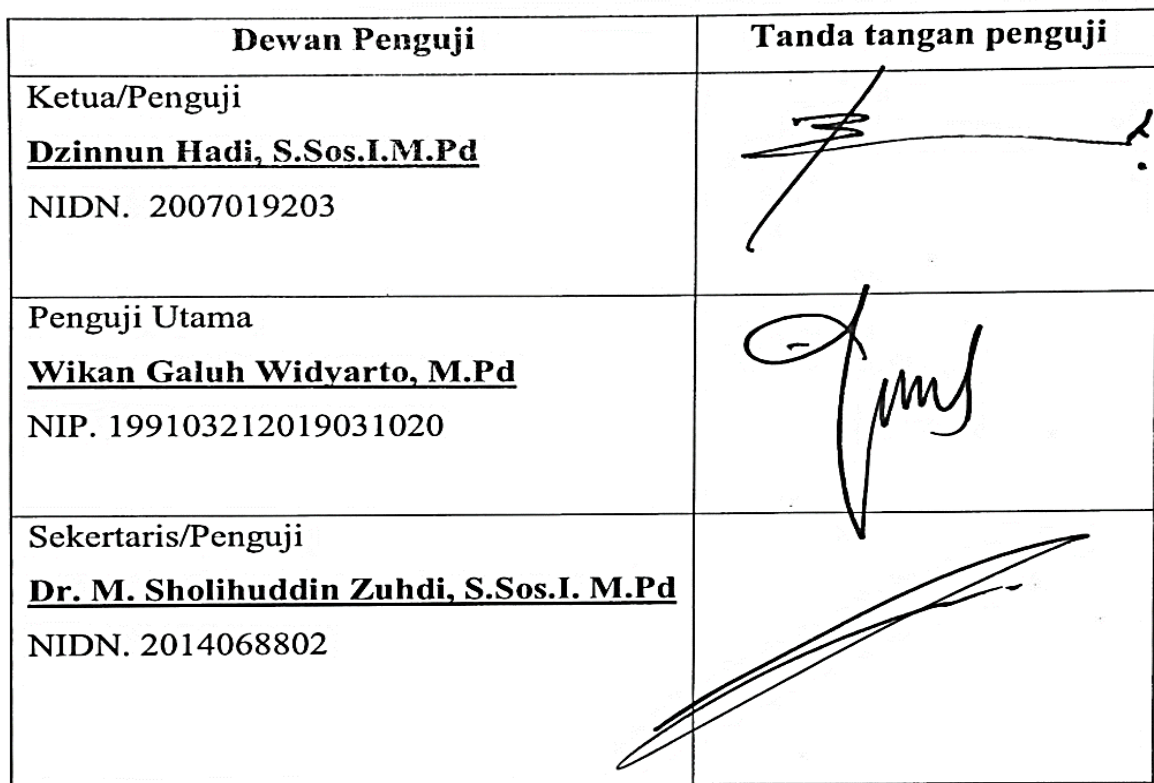 Dewan Penguji
Tanda tangan penguji
Ketua/Penguji
Dzinnun Hadi, S.Sos.I.M.Pd
NIDN. 2007019203
Penguji Utama
Wikan Galuh Widyarto, M.Pd
NIP. 199103212019031020
Sekertaris/Penguji
Dr. M. Sholihuddin Zuhdi, S.Sos.I. M.Pd
NIDN. 2014068802